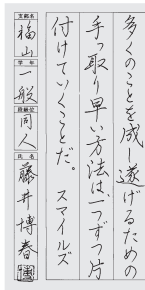 多くのことを成し遂げるための
手っ取り早い方法は、一つずつ片
付けていくことだ。 スマイルズ
支部名 福山
学年 一般
段級位 同人
氏名 藤井博春